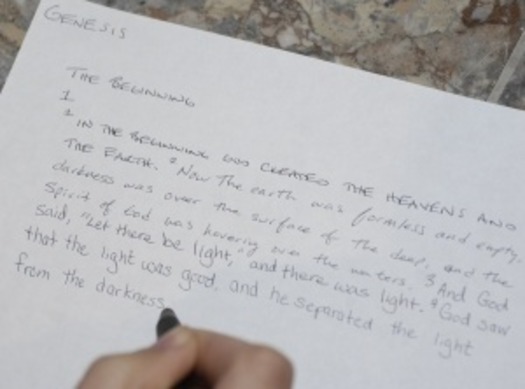 GENESIS
THE BEGINNING
1
1 IN THE BEGINNING GOD CREATED THE HEAVENS AND
THE EARTH. 2 Now The earth was formless and empty,
darkness was over the surface of the deep, and the
Spirit of God was hovering over the waters. 3 And God
said, "Let there be light," and there was light. 4 God saw
that the light was good, and he separated the light
from the darkness